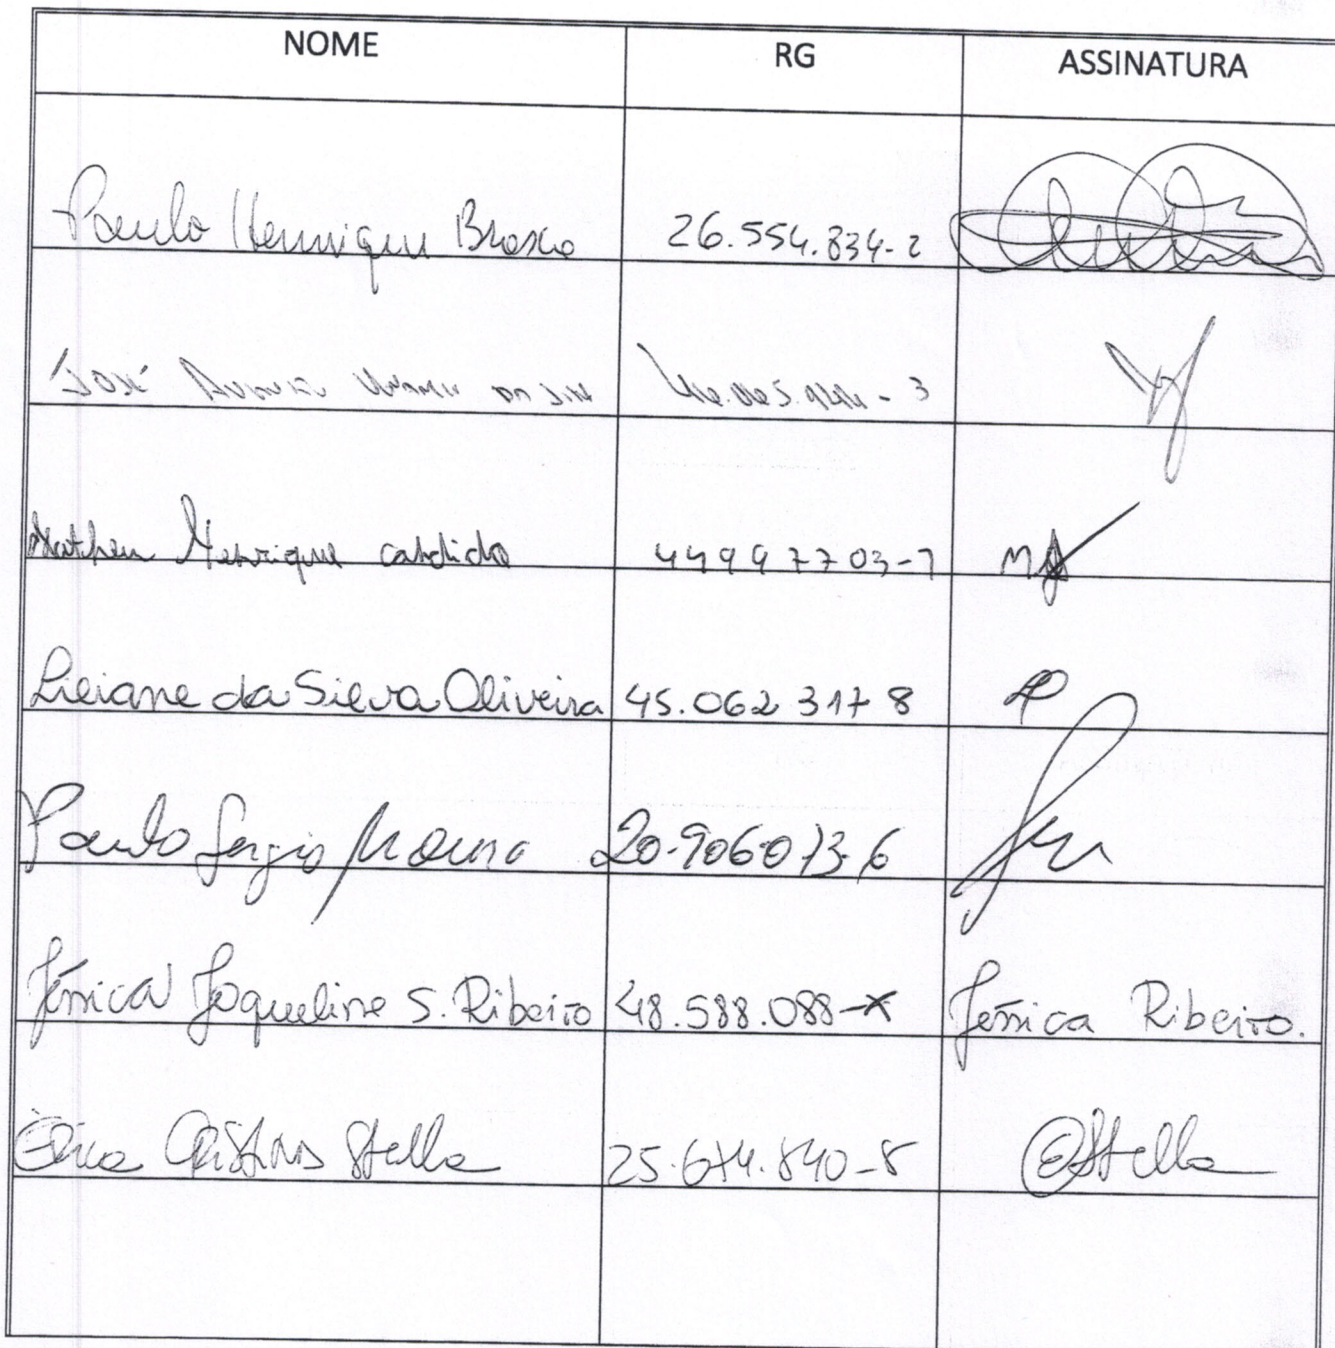 NOME RG ASSINATURA
Paulo Henrique Brosco 26.554.834-2
José - 3
Matheu Henrique cardido 44997703-7
Liliane da Silva Oliveira 45.062 317 8
Paulo Sergio Moura 20-906013-6
Jéssica Jaqueline S. Ribeiro 48.588.088-X Jéssica Ribeiro.
Érica Cristina Stella 25.674.840-8 EStella